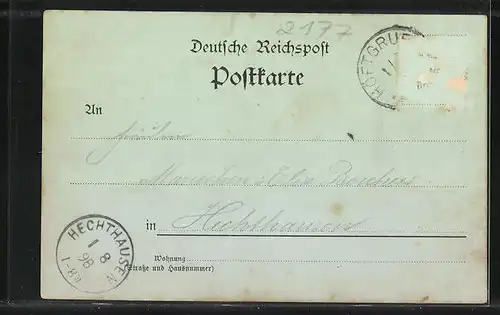 2177
Deutsche Reichspost
Postkarte
HÖFTGRUB
An
Fräulein
in Hechthausen
HECHTHAUSEN
1 8
98
1-8N
Wohnung
(Straße und Hausnummer)